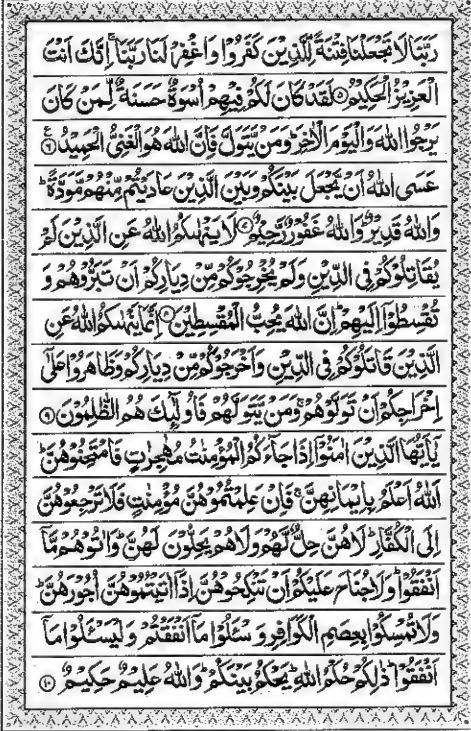 رَبَّنَا لَا تَجْعَلْنَا فِتْنَةً لِّلَّذِيْنَ كَفَرُوْا وَاغْفِرْ لَنَا رَبَّنَا ۚ اِنَّكَ اَنْتَ
الْعَزِيْزُ الْحَكِيْمُ ۵ لَقَدْ كَانَ لَكُمْ فِيْهِمْ اُسْوَةٌ حَسَنَةٌ لِّمَنْ كَانَ
يَرْجُوا اللّٰهَ وَالْيَوْمَ الْاٰخِرَ ؕ وَمَنْ يَّتَوَلَّ فَاِنَّ اللّٰهَ هُوَ الْغَنِيُّ الْحَمِيْدُ ۶ ع
عَسَى اللّٰهُ اَنْ يَّجْعَلَ بَيْنَكُمْ وَبَيْنَ الَّذِيْنَ عَادَيْتُمْ مِّنْهُمْ مَّوَدَّةً ؕ
وَاللّٰهُ قَدِيْرٌ ؕ وَاللّٰهُ غَفُوْرٌ رَّحِيْمٌ ۷ لَا يَنْهٰىكُمُ اللّٰهُ عَنِ الَّذِيْنَ لَمْ
يُقَاتِلُوْكُمْ فِى الدِّيْنِ وَلَمْ يُخْرِجُوْكُمْ مِّنْ دِيَارِكُمْ اَنْ تَبَرُّوْهُمْ وَ
تُقْسِطُوْۤا اِلَيْهِمْ ؕ اِنَّ اللّٰهَ يُحِبُّ الْمُقْسِطِيْنَ ۸ اِنَّمَا يَنْهٰىكُمُ اللّٰهُ عَنِ
الَّذِيْنَ قَاتَلُوْكُمْ فِى الدِّيْنِ وَاَخْرَجُوْكُمْ مِّنْ دِيَارِكُمْ وَظَاهَرُوْا عَلٰۤى
اِخْرَاجِكُمْ اَنْ تَوَلَّوْهُمْ ۚ وَمَنْ يَّتَوَلَّهُمْ فَاُولٰٓئِكَ هُمُ الظّٰلِمُوْنَ ۹
يٰۤاَيُّهَا الَّذِيْنَ اٰمَنُوْۤا اِذَا جَآءَكُمُ الْمُؤْمِنٰتُ مُهٰجِرٰتٍ فَامْتَحِنُوْهُنَّ ؕ
اَللّٰهُ اَعْلَمُ بِاِيْمَانِهِنَّ ۚ فَاِنْ عَلِمْتُمُوْهُنَّ مُؤْمِنٰتٍ فَلَا تَرْجِعُوْهُنَّ
اِلَى الْكُفَّارِ ؕ لَا هُنَّ حِلٌّ لَّهُمْ وَلَا هُمْ يَحِلُّوْنَ لَهُنَّ ؕ وَاٰتُوْهُمْ مَّاۤ
اَنْفَقُوْا ؕ وَلَا جُنَاحَ عَلَيْكُمْ اَنْ تَنْكِحُوْهُنَّ اِذَاۤ اٰتَيْتُمُوْهُنَّ اُجُوْرَهُنَّ ؕ
وَلَا تُمْسِكُوْا بِعِصَمِ الْكَوَافِرِ وَسْئَلُوْا مَاۤ اَنْفَقْتُمْ وَلْيَسْئَلُوْا مَاۤ
اَنْفَقُوْا ؕ ذٰلِكُمْ حُكْمُ اللّٰهِ ؕ يَحْكُمُ بَيْنَكُمْ ؕ وَاللّٰهُ عَلِيْمٌ حَكِيْمٌ ۱۰